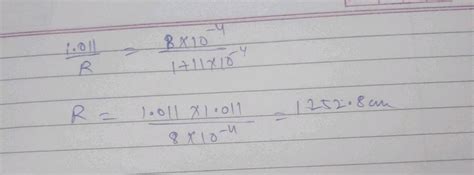 1.011 / R = 8×10⁻⁴ / 1+11×10⁻⁴
R = 1.011 × 1.011 / 8×10⁻⁴ = 1252.8cm